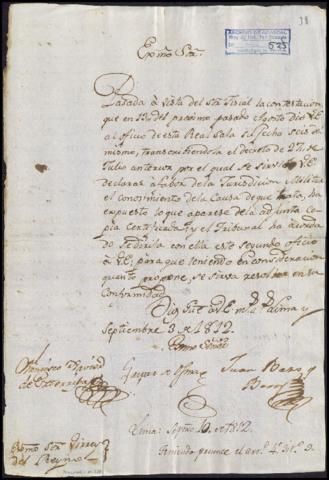 38
ARCHIVO DE ABASCAL
525
Exmo. Sor.
Pasada à vista del Sor. Fiscal la contextacion
que en 19 del proximo pasado Agosto dio V.E.
al oficio de esta Real Sala su fecha seis del
mismo, transcribiendola el decreto de 27 de
Julio anterior por el qual se sirvió V.E.
declarar a favor de la Jurisdicion Militar
el conocimiento de la Causa de que trata, ha
expuesto lo que aparece de la adjunta Co
pia Certificada: y el Tribunal ha acorda
do se dirija con ella este segundo oficio
à V.E. para que teniendo en consideracion
quanto propone, se sirva resolver en su
conformidad.
Dios gue. a V.E. ms. as. Lima y
Septiembre 3 de 1812.
Exmo. Señor
Francisco Xavier
Juan Bazo y
Berry
Lima Septre. 10 de 1812.
Exmo. Sor. Virrey
del Reyno